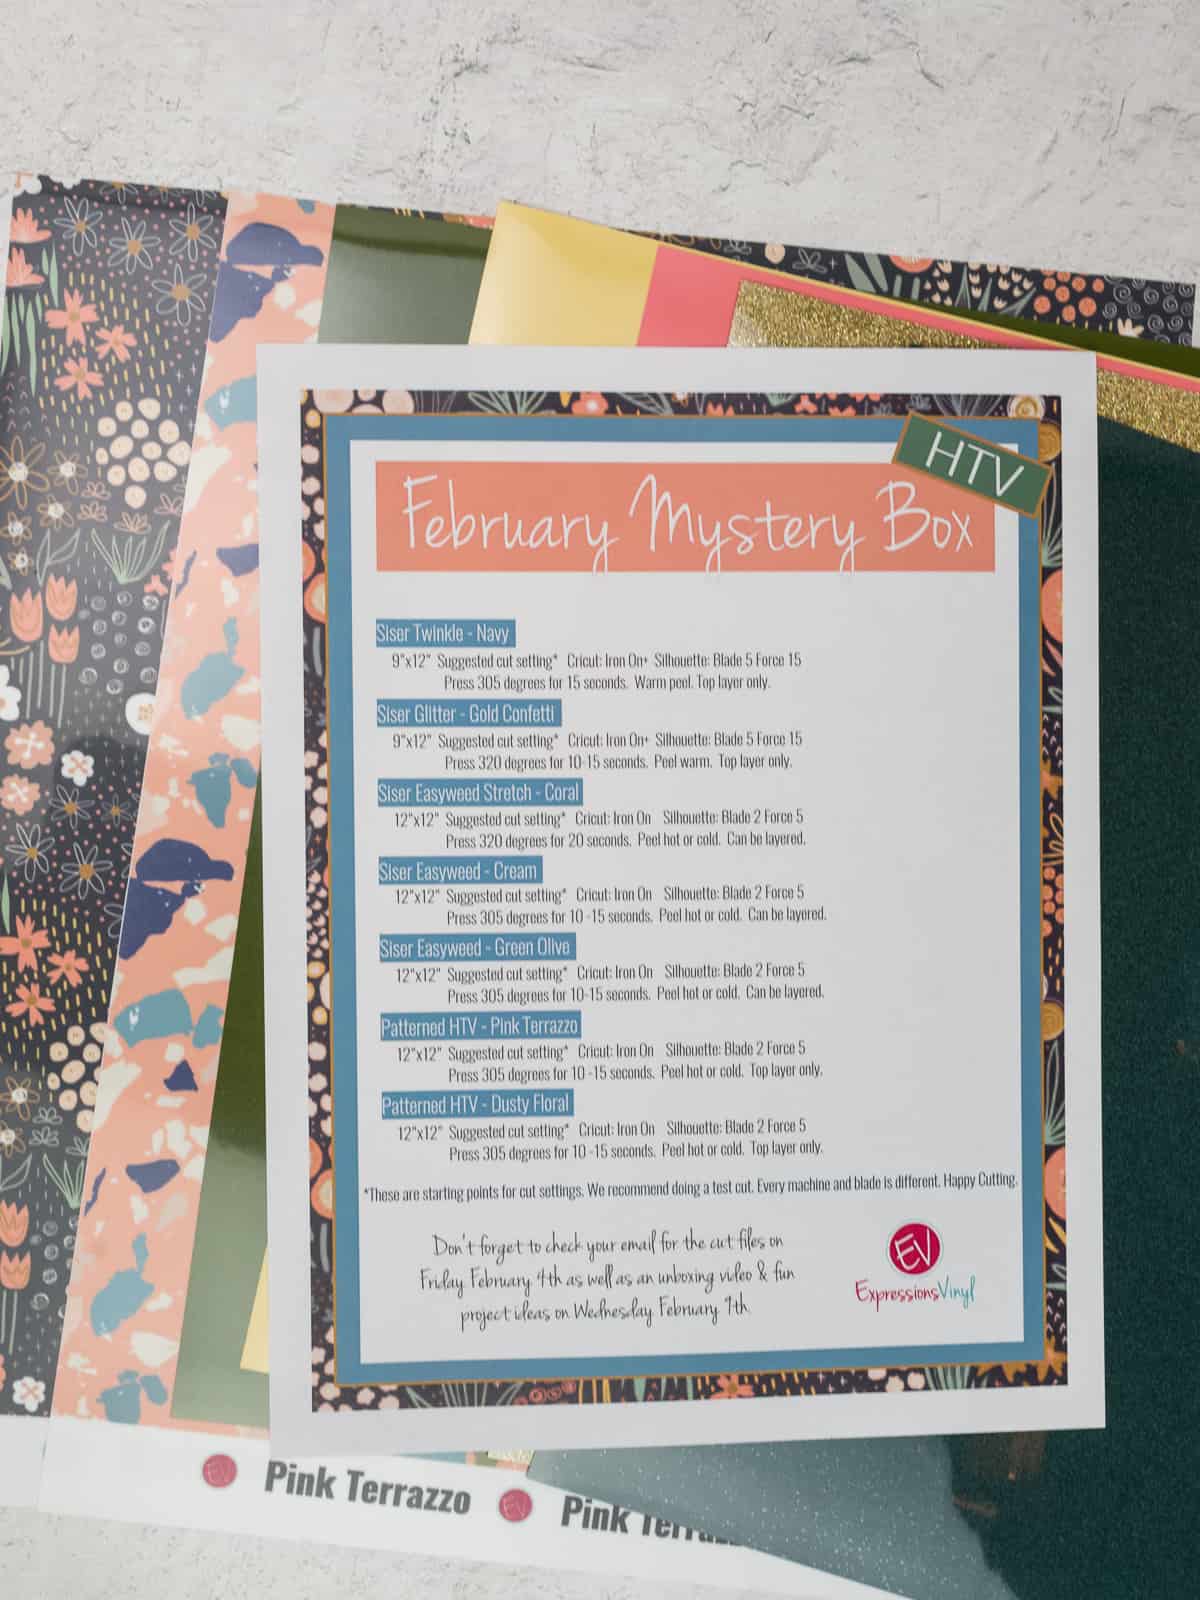 HTV
February Mystery Box
Siser Twinkle - Navy
9"x12" Suggested cut setting* Cricut: Iron On+ Silhouette: Blade 5 Force 15
Press 305 degrees for 15 seconds. Warm peel. Top layer only.
Siser Glitter - Gold Confetti
9"x12" Suggested cut setting* Cricut: Iron On+ Silhouette: Blade 5 Force 15
Press 320 degrees for 10-15 seconds. Peel warm. Top layer only.
Siser Easyweed Stretch - Coral
12"x12" Suggested cut setting* Cricut: Iron On Silhouette: Blade 2 Force 5
Press 320 degrees for 20 seconds. Peel hot or cold. Can be layered.
Siser Easyweed - Cream
12"x12" Suggested cut setting* Cricut: Iron On Silhouette: Blade 2 Force 5
Press 305 degrees for 10 -15 seconds. Peel hot or cold. Can be layered.
Siser Easyweed - Green Olive
12"x12" Suggested cut setting* Cricut: Iron On Silhouette: Blade 2 Force 5
Press 305 degrees for 10-15 seconds. Peel hot or cold. Can be layered.
Patterned HTV - Pink Terrazzo
12"x12" Suggested cut setting* Cricut: Iron On Silhouette: Blade 2 Force 5
Press 305 degrees for 10 -15 seconds. Peel hot or cold. Top layer only.
Patterned HTV - Dusty Floral
12"x12" Suggested cut setting* Cricut: Iron On Silhouette: Blade 2 Force 5
Press 305 degrees for 10 -15 seconds. Peel hot or cold. Top layer only.
*These are starting points for cut settings. We recommend doing a test cut. Every machine and blade is different. Happy Cutting.
Don't forget to check your email for the cut files on
Friday February 4th as well as an unboxing video & fun
project ideas on Wednesday February 9th.
EV
ExpressionsVinyl
EV Pink Terrazzo EV Pink